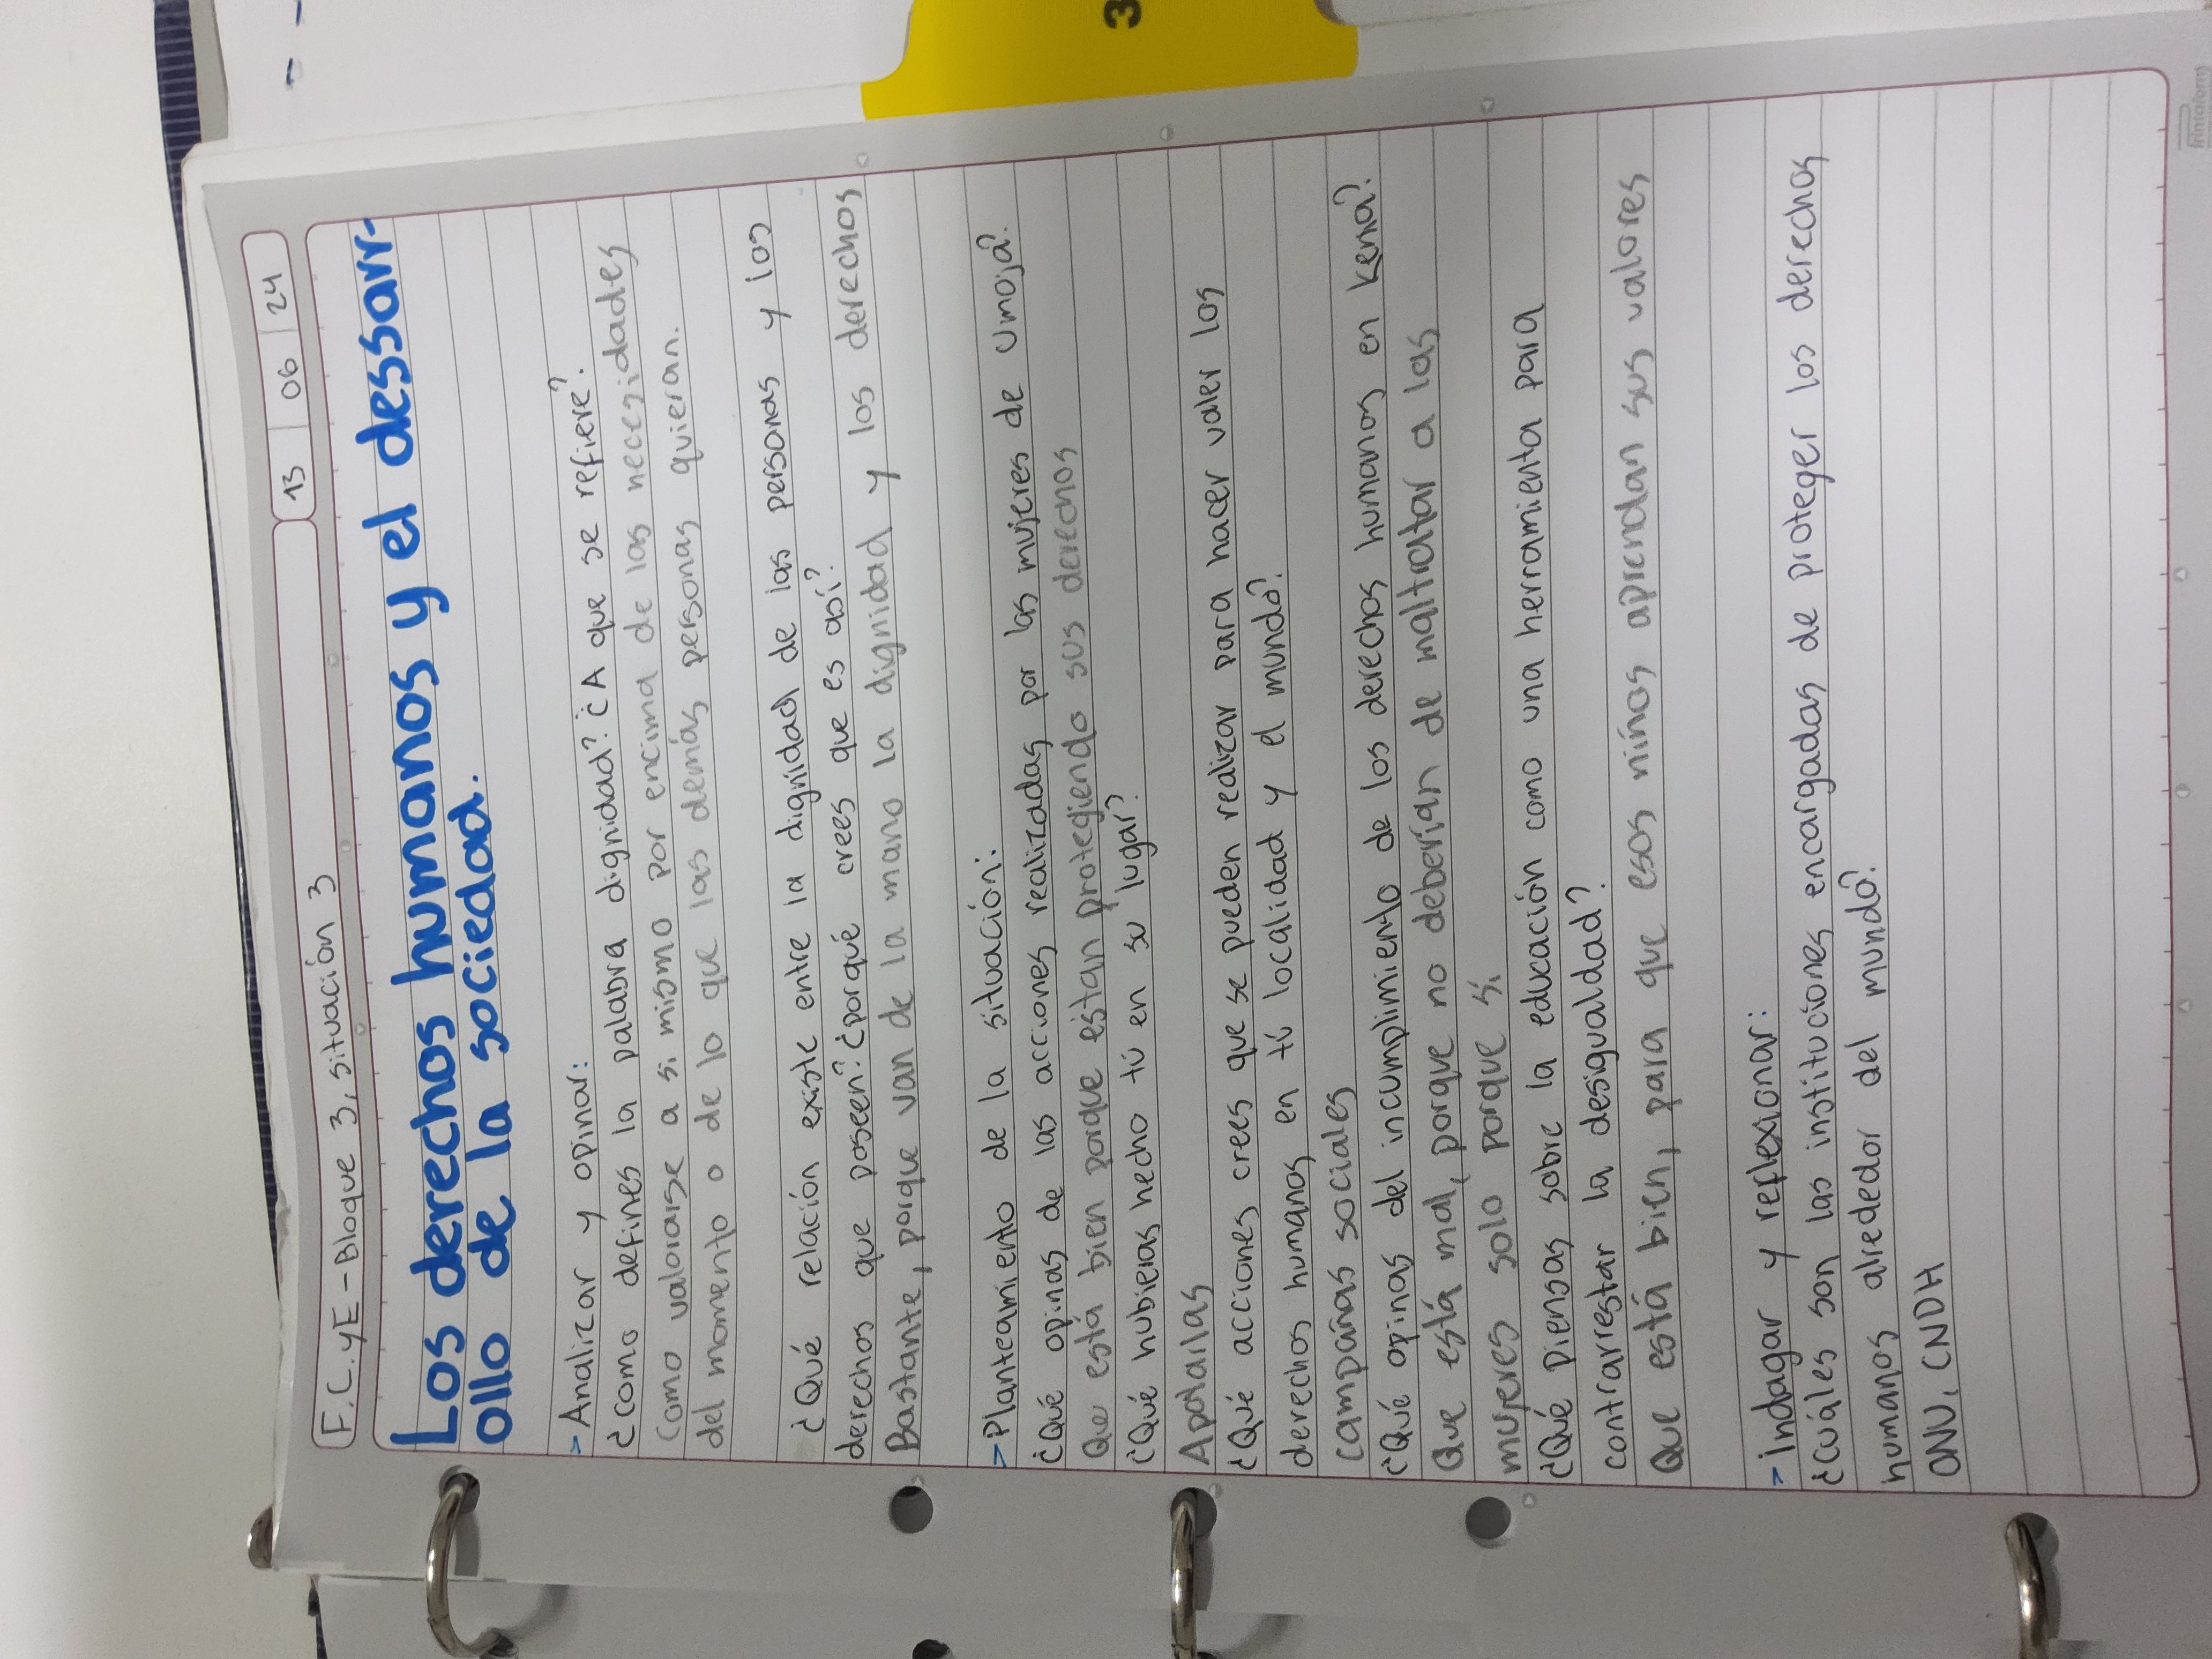 F.C.yE-Bloque 3, situación 3
13 06 24
Los derechos humanos y el dessarr-
ollo de la sociedad.
> Analizar y opinar:
¿como defines la palabra dignidad? ¿A que se refiere?
Como valorarse a si mismo por encima de las necesidades
del momento o de lo que las demás personas quieran.
¿Qué relación existe entre la dignidad de las personas y los
derechos que poseen? ¿porqué crees que es así?
Bastante, porque van de la mano la dignidad y los derechos
> Planteamiento de la situación:
¿Qué opinas de las acciones realizadas por las mujeres de Umoja?
Que está bien porque estan protegiendo sus derechos
¿Qué hubieras hecho tú en su lugar?
Apoyarlas
¿Qué acciones crees que se pueden realizar para hacer valer los
derechos humanos en tú localidad y el mundo?
campañas sociales
¿Qué opinas del incumplimiento de los derechos humanos en Kenia?
Que está mal, porque no deberían de maltratar a las
mujeres solo porque si.
¿Qué piensas sobre la educación como una herramienta para
contrarrestar la desigualdad?
Que está bien, para que esos niños aprendan sus valores
> Indagar y reflexionar:
¿Cuáles son las instituciones encargadas de proteger los derechos
humanos alrededor del mundo?
ONU, CNDH
3